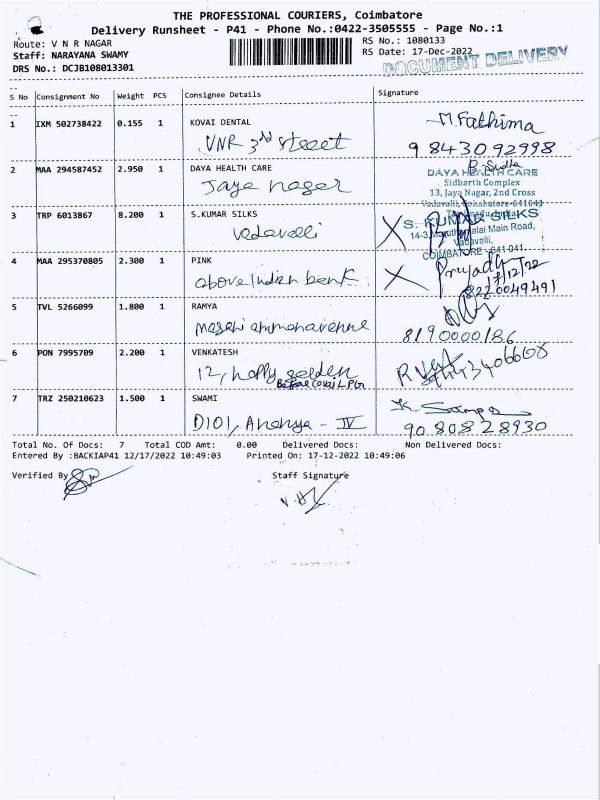 THE PROFESSIONAL COURIERS, Coimbatore
Delivery Runsheet - P41 - Phone No.:0422-3505555 - Page No.:1
Route: V N R NAGAR
Staff: NARAYANA SWAMY
DRS No.: DCJB108013301
RS No.: 1080133
RS Date: 17-Dec-2022
DOCUMENT DELIVERY
S No Consignment No Weight PCS Consignee Details Signature
1 IXM 502738422 0.155 1 KOVAI DENTAL M.Fathima
VNR 3rd street 9843092998
2 MAA 294587452 2.950 1 DAYA HEALTH CARE
Jaya nager
DAYA HEALTH CARE
Sidharth Complex
13, Jaya Nagar, 2nd Cross
Vadavalli, Coimbatore-641641
3 TRP 6013867 8.200 1 S.KUMAR SILKS
vadavalli
S. KUMAR SILKS
14-3, Maruthamalai Main Road,
Vadavalli,
COIMBATORE - 641 041.
4 MAA 295370805 2.300 1 PINK
above Indian bank
17/12/22
8220049491
5 TVL 5266099 1.800 1 RAMYA
8190000186
6 PON 7995709 2.200 1 VENKATESH
12, happy golden
7 TRZ 250210623 1.500 1 SWAMI
D101, Ananya - IV 9080828930
Total No. Of Docs: 7 Total COD Amt: 0.00 Delivered Docs: Non Delivered Docs:
Entered By :BACKIAP41 12/17/2022 10:49:03 Printed On: 17-12-2022 10:49:06
Verified By Staff Signature